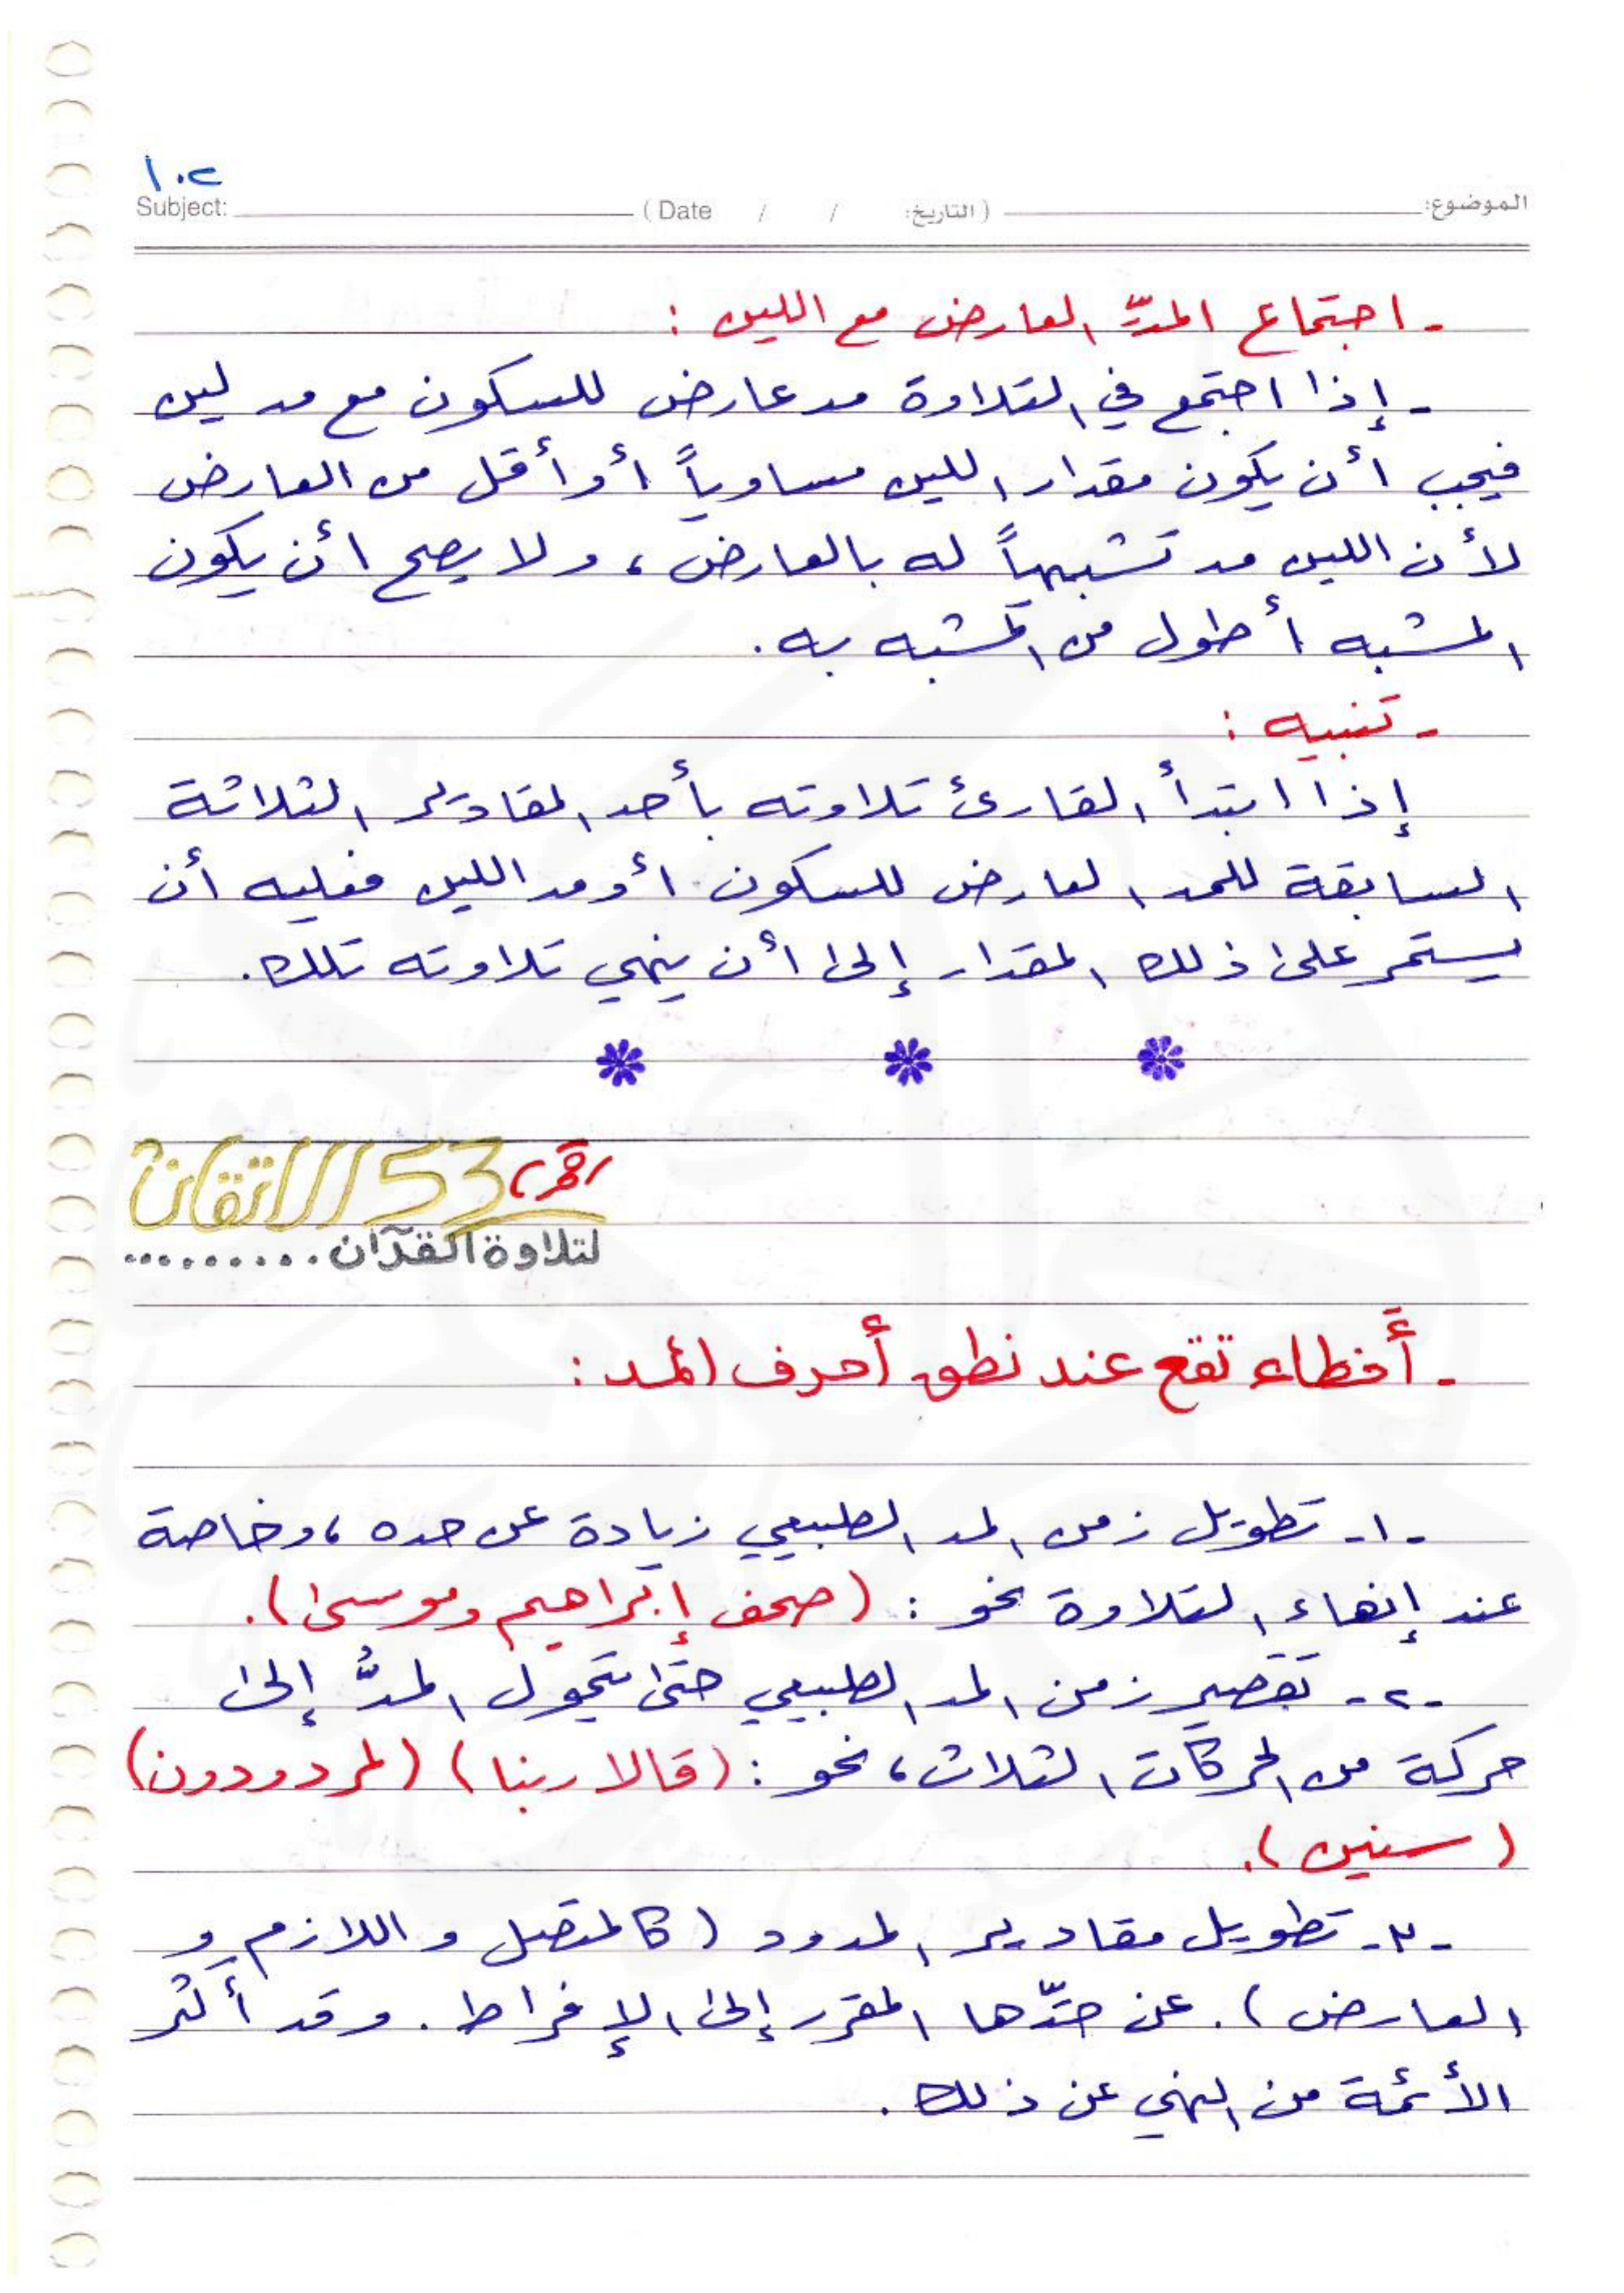 ١٠٢
الموضوع: (التاريخ: / / Date) Subject:
- اجتماع المدّ العارض مع اللين :
- إذا اجتمع في التلاوة مد عارض للسكون مع مد لين
فيجب أن يكون مقدار اللين مساوياً أو أقل من العارض
لأن اللين مد تشبيهاً له بالعارض ، ولا يصح أن يكون
المشبه أطول من المشبه به .
- تنبيه :
إذا ابتدأ القارئ تلاوته بأحد المقادير الثلاثة
السابقة للمد العارض للسكون أو مد اللين فعليه أن
يستمر على ذلك المقدار إلى أن ينهي تلاوته تلك .
الاتقان 53
لتلاوة القرآن .........
- أخطاء تقع عند نطق أحرف المد :
-١- تطويل زمن المد الطبيعي زيادة عن حده ، وخاصة
عند إنهاء التلاوة نحو : (صحف إبراهيم وموسى) .
-٢- تقصير زمن المد الطبيعي حتى يتحول المدُّ إلى
حركة من الحركات الثلاث ، نحو : (قالا ربنا) (لمردودون)
(سنين) .
-٣- تطويل مقادير المدود (كالمتصل واللازم و
العارض) . عن حدّها المقرر إلى الإفراط . وقد أكثر
الأئمة من النهي عن ذلك .